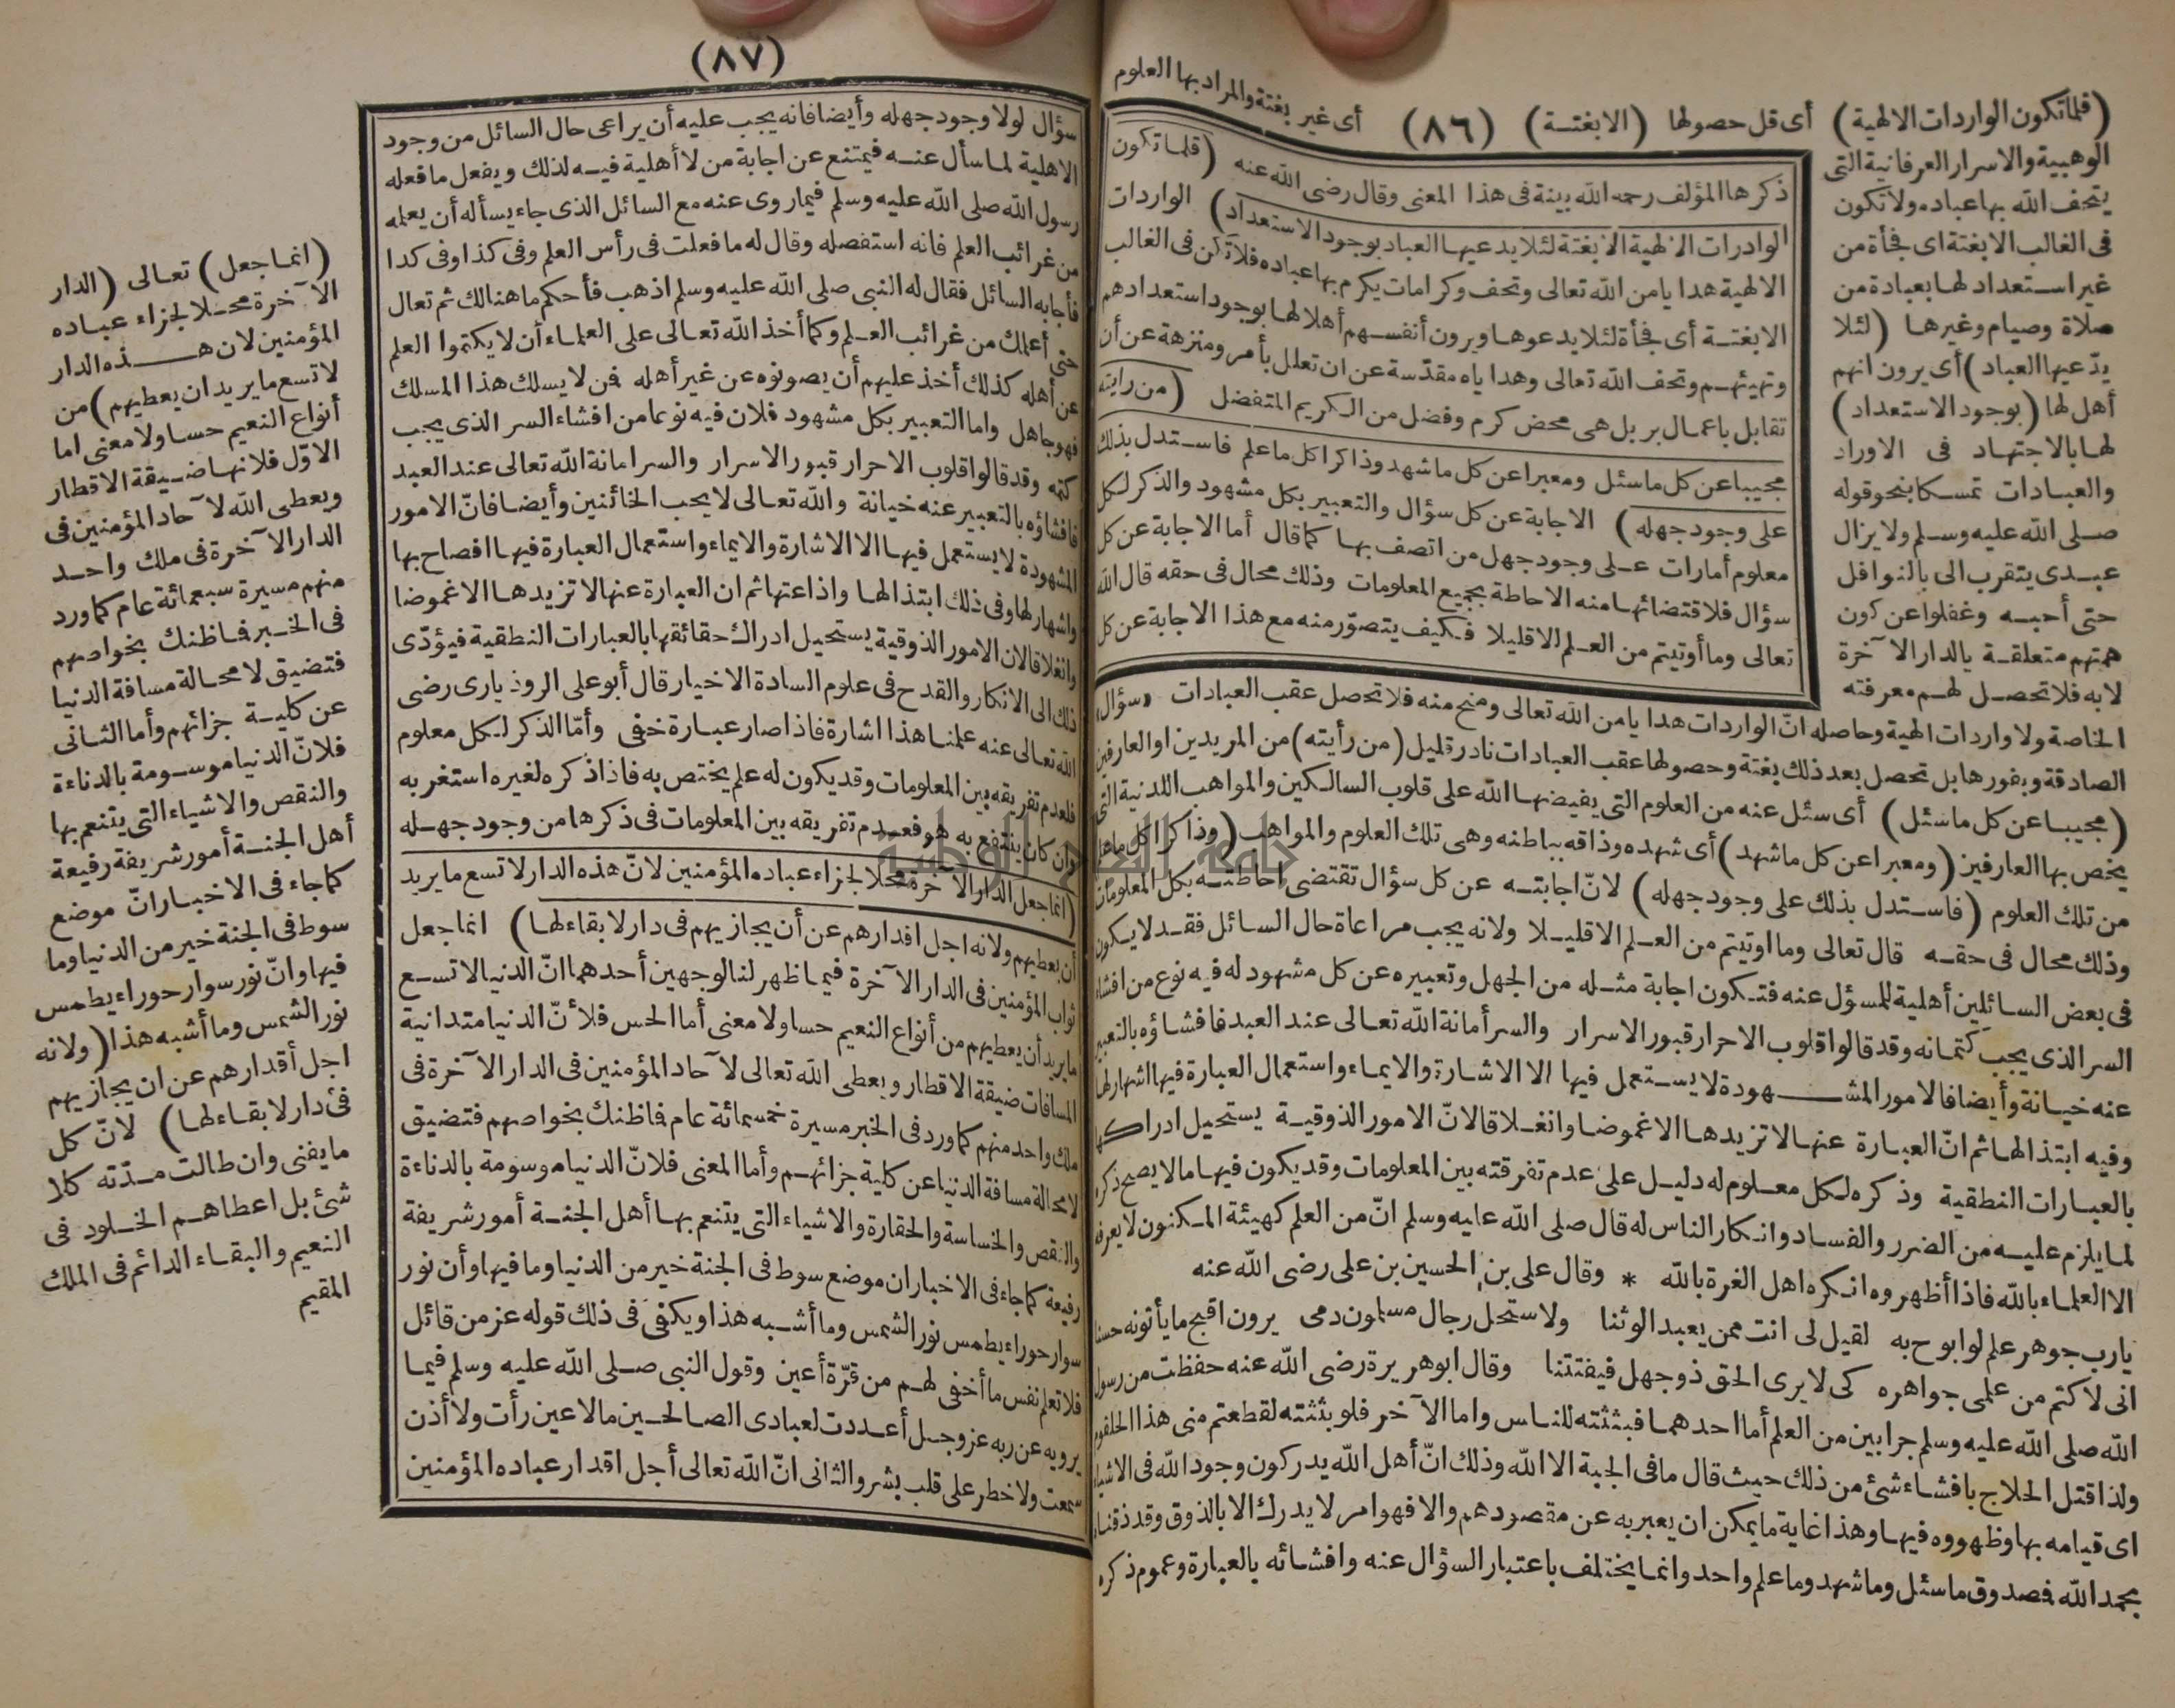 (٨٦)
(فلما تكون الواردات الالهية) أى قل حصولها (الابغتـة) أى غير بغتة والمراد بها العلوم
الوهبية والاسرار العرفانية التى
يتحف الله بها عباده ولا تكون
فى الغالب الابغتة اى فجأة من
غير استعداد لها بعبادة من
صلاة وصيام وغيرها (لئلا
يدّعيها العباد) أى يرون انهم
أهل لها (بوجود الاستعداد)
لها بالاجتهاد فى الاوراد
والعبادات تمسكا بنحو قوله
صلى الله عليه وسلم ولا يزال
عبدى يتقرب الى بالنوافل
حتى أحبه وغفلوا عن كون
همتهم متعلقة بالدار الآخرة
لابه فلا تحصل لهم معرفته
ذكرها المؤلف رحمه الله بينة فى هذا المعنى وقال رضى الله عنه (قلما تكون
الوادرات الالهية الابغتة لئلا يدعيها العباد بوجود الاستعداد) الواردات
الالهية هدايا من الله تعالى وتحف وكرامات يكرم بها عباده فلا تكن فى الغالب
الابغتـة أى فجأة لئلا يدعوها ويرون أنفسهم أهلا لها بوجود استعدادهم
وتهيئهم وتحف الله تعالى وهداياه مقدّسة عن ان تعلل بأمر ومنزهة عن أن
تقابل باعمال بر بل هى محض كرم وفضل من الكريم المتفضل (من رايته
مجيبا عن كل ماسئل ومعبرا عن كل ما شهد وذاكرا كل ما علم فاستدل بذلك
على وجود جهله) الاجابة عن كل سؤال والتعبير بكل مشهود والذكر لكل
معلوم أمارات على وجود جهل من اتصف بها كما قال أما الاجابة عن كل
سؤال فلاقتضائها منه الاحاطة بجميع المعلومات وذلك محال فى حقه قال الله
تعالى وما أوتيتم من العلم الاقليلا فكيف يتصوّر منه مع هذا الاجابة عن كل
الخاصة ولا واردات الهية وحاصله انّ الواردات هدايا من الله تعالى ومنح منه فلا تحصل عقب العبادات
الصادقة وبفورها بل تحصل بعد ذلك بغتة وحصولها عقب العبادات نادر قليل (من رأيته) من المريدين او العارفين
(مجيبا عن كل ماسئل) أى سئل عنه من العلوم التى يفيضها الله على قلوب السالكين والمواهب اللدنية التى
يخص بها العارفين (ومعبرا عن كل ماشهد) أى شهده وذاقه بباطنه وهى تلك العلوم والمواهب (وذاكرا كل ماعلم
من تلك العلوم (فاستدل بذلك على وجود جهله) لانّ اجابته عن كل سؤال تقتضى احاطته بكل المعلومات
وذلك محال فى حقه قال تعالى وما اوتيتم من العلم الاقليلا ولانه يجب مراعاة حال السائل فقد لا يكون
فى بعض السائلين أهلية للمسؤل عنه فتكون اجابة مثله من الجهل وتعبيره عن كل مشهود له فيه نوع من افشاء
السر الذى يجب كتمانه وقد قالوا قلوب الاحرار قبور الاسرار والسر أمانة الله تعالى عند العبد فافشاؤه بالتعبير
عنه خيانة وأيضا فالامور المشهودة لا يستعمل فيها الا الاشارة والايماء واستعمال العبارة فيها اشهار لها
وفيه ابتذالها ثم انّ العبارة عنها لا تزيدها الاغموضا وانغلاقا لانّ الامور الذوقية يستحيل ادراكها
بالعبارات النطقية وذكره لكل معلوم له دليل على عدم تفرقته بين المعلومات وقد يكون فيها مالا يصح ذكره
لما يلزم عليه من الضرر والفساد وانكار الناس له قال صلى الله عليه وسلم انّ من العلم كهيئة المكنون لا يعرفه
الا العلماء بالله فاذا أظهروه انكره اهل الغرة بالله * وقال على بن الحسين بن على رضى الله عنه
يارب جوهر علم لوابوح به لقيل لى انت ممن يعبد الوثنا ولاستحل رجال مسلمون دمى يرون اقبح ما يأتونه حسنا
انى لاكتم من علمى جواهره كى لا يرى الحق ذو جهل فيفتتنا وقال ابو هريرة رضى الله عنه حفظت من رسول
الله صلى الله عليه وسلم جرابين من العلم أما احدهما فبثثته للناس واما الآخر فلو بثثته لقطعتم منى هذا الحلقوم
ولذا قتل الحلاج بافشاء شئ من ذلك حيث قال مافى الجبة الا الله وذلك انّ أهل الله يدركون وجود الله فى الاشياء
اى قيامه بها وظهووه فيها وهذا غاية ما يمكن ان يعبر به عن مقصودهم والا فهو امر لا يدرك الا بالذوق وقد ذقناه
بحمد الله فصدوق ماسئل وما شهد وما علم واحد وانما يختلف باعتبار السؤال عنه وافشائه بالعبارة وعموم ذكره
(٨٧)
سؤال لولا وجود جهله وأيضا فانه يجب عليه أن يراعى حال السائل من وجود
الاهلية لما سأل عنه فيمتنع عن اجابة من لا أهلية فيه لذلك ويفعل مافعله
رسول الله صلى الله عليه وسلم فيما روى عنه مع السائل الذى جاء يسأله أن يعلمه
من غرائب العلم فانه استفصله وقال له ما فعلت فى رأس العلم وفى كذا وفى كدا
فأجابه السائل فقال له النبى صلى الله عليه وسلم اذهب فأحكم ما هنالك ثم تعال
حتى أعلمك من غرائب العلم وكما أخذ الله تعالى على العلماء أن لا يكتموا العلم
عن أهله كذلك أخذ عليهم أن يصونوه عن غير أهله فمن لا يسلك هذا المسلك
فهو جاهل واما التعبير بكل مشهود فلان فيه نوعا من افشاء السر الذى يجب
كتمه وقد قالوا قلوب الاحرار قبور الاسرار والسر امانة الله تعالى عند العبد
فافشاؤه بالتعبير عنه خيانة والله تعالى لا يحب الخائنين وأيضا فانّ الامور
المشهودة لا يستعمل فيها الا الاشارة والايماء واستعمال العبارة فيها افصاح بها
واشهار لها وفى ذلك ابتذالها واذاعتها ثم ان العبارة عنها لا تزيدها الاغموضا
وانغلاقا لان الامور الذوقية يستحيل ادراك حقائقها بالعبارات النطقية فيؤدّى
ذلك الى الانكار والقدح فى علوم السادة الاخيار قال أبو على الروذبارى رضى
الله تعالى عنه علمنا هذا اشارة فاذا صار عبارة خفى وأمّا الذكر لكل معلوم
فلعدم تفريقه بين المعلومات وقد يكون له علم يختص به فاذا ذكره لغيره استغر به
وان كان ينتفع به هو فعدم تفريقه بين المعلومات فى ذكرها من وجود جهله
(انما جعل الدار الآخرة محلا لجزاء عباده المؤمنين لانّ هذه الدار لا تسع ما يريد
أن يعطيهم ولانه اجل اقدارهم عن أن يجازيهم فى دار لا بقاء لها) انما جعل
ثواب المؤمنين فى الدار الآخرة فيما ظهر لنا لوجهين أحدهما انّ الدنيا لا تسع
ما يريد أن يعطيهم من أنواع النعيم حسا ولا معنى أما الحس فلأنّ الدنيا متدانية
المسافات ضيقة الاقطار ويعطى الله تعالى لآحاد المؤمنين فى الدار الآخرة فى
ملك واحد منهم كما ورد فى الخبر مسيرة خمسمائة عام فاظنك بخواصهم فتضيق
لا محالة مسافة الدنيا عن كلية جزائهم وأما المعنى فلانّ الدنيا موسومة بالدناءة
والنقص والخساسة والحقارة والاشياء التى يتنعم بها أهل الجنة أمور شريفة
رفيعة كما جاء فى الاخبار ان موضع سوط فى الجنة خير من الدنيا وما فيها وأن نور
سوار حوراء يطمس نور الشمس وما أشبه هذا ويكفى فى ذلك قوله عز من قائل
فلا تعلم نفس ما أخفى لهم من قرّة أعين وقول النبى صلى الله عليه وسلم فيما
يرويه عن ربه عز وجل أعددت لعبادى الصالحين مالا عين رأت ولا أذن
سمعت ولا خطر على قلب بشر والثانى انّ الله تعالى أجل اقدار عباده المؤمنين
(انما جعل) تعالى (الدار
الآخرة محلا لجزاء عباده
المؤمنين لان هذه الدار
لا تسع ما يريد ان يعطيهم) من
أنواع النعيم حسا ولا معنى اما
الاوّل فلانها ضيقة الاقطار
ويعطى الله لآحاد المؤمنين فى
الدار الآخرة فى ملك واحد
منهم مسيرة سبعمائة عام كما ورد
فى الخبر فاظنك بخواصهم
فتضيق لا محالة مسافة الدنيا
عن كلية جزائهم وأما الثانى
فلانّ الدنيا موسومة بالدناءة
والنقص والاشياء التى يتنعم بها
أهل الجنة أمور شريفة رفيعة
كما جاء فى الاخبار انّ موضع
سوط فى الجنة خير من الدنيا وما
فيها وانّ نور سوار حوراء يطمس
نور الشمس وما أشبه هذا (ولانه
اجل أقدارهم عن ان يجازيهم
فى دار لا بقاء لها) لانّ كل
ما يفنى وان طالت مدّته كلا
شئ بل اعطاهم الخلود فى
النعيم والبقاء الدائم فى الملك
المقيم